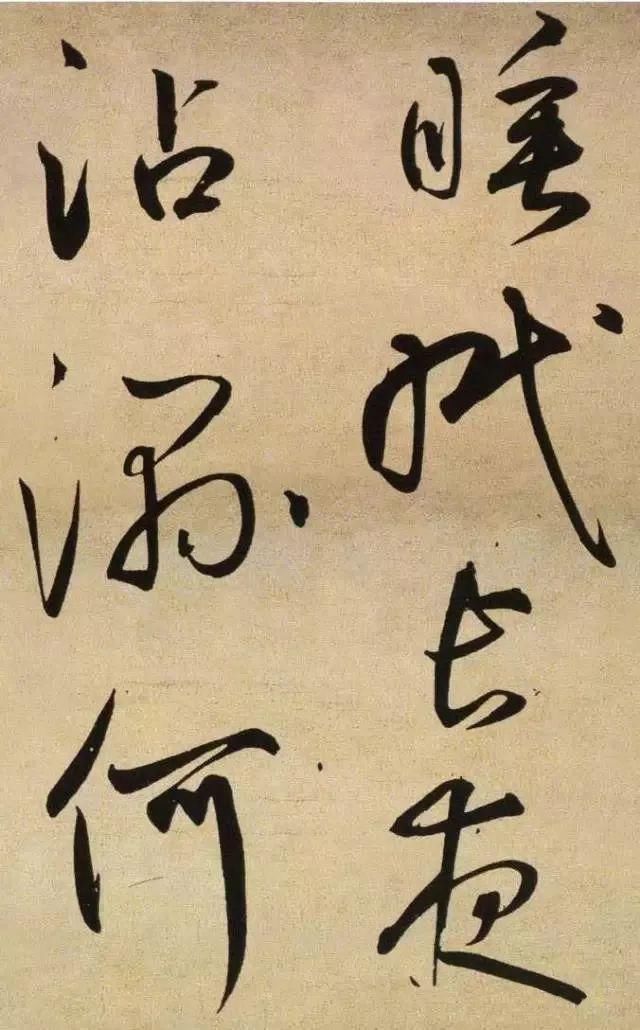 睡眠长夜
沾濕何